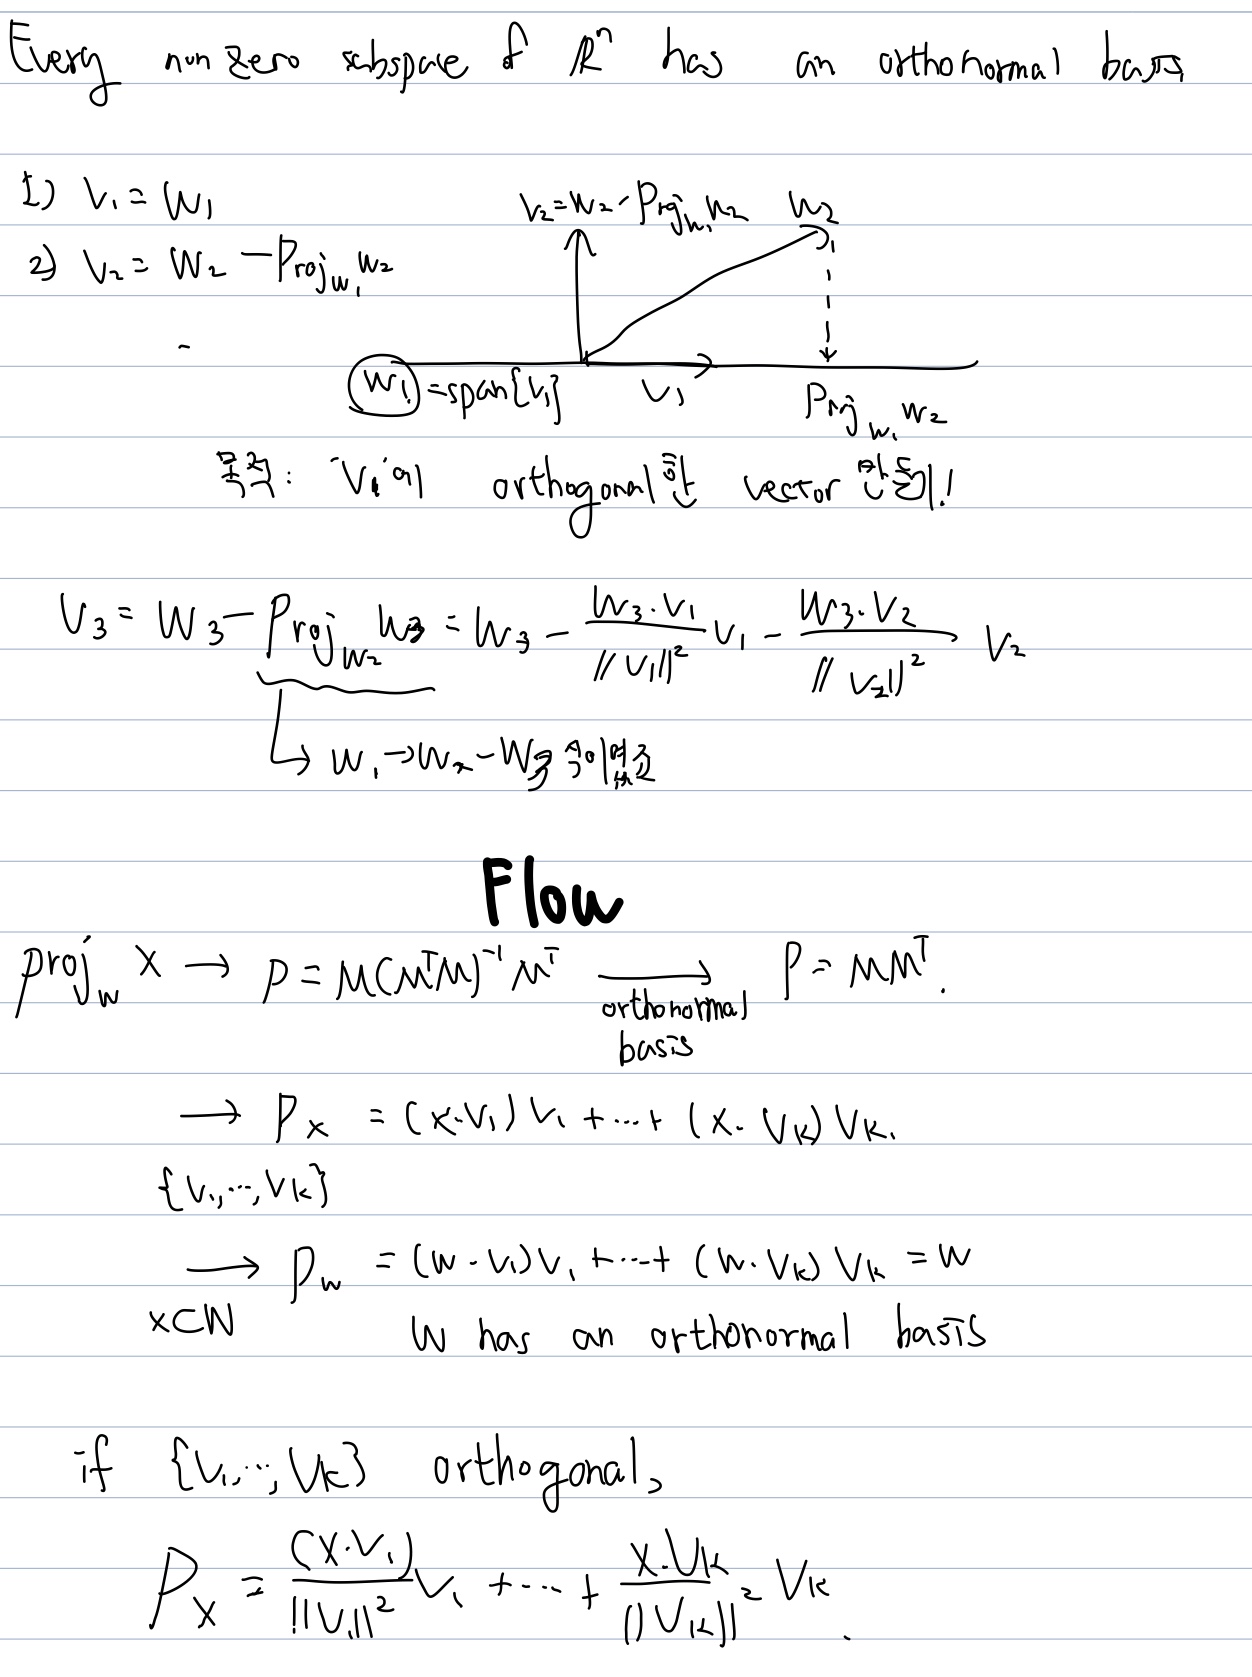 Every nonzero subspace of Rⁿ has an orthonormal basis
1) V₁ = W₁
2) V₂ = W₂ - Proj_W₁ W₂
V₂ = W₂ - Proj_W₁ W₂
W₂
W₁ = span{V₁}
V₁
Proj_W₁ W₂
목적: V₁에 orthogonal한 vector 만들기!
V₃ = W₃ - Proj_W₂ W₃ = W₃ - (W₃·V₁)/||V₁||² V₁ - (W₃·V₂)/||V₂||² V₂
↳ W₁ → W₂ - W₃
Flow
proj_W X → P = M(MᵀM)⁻¹Mᵀ → P = MMᵀ.
orthonormal
basis
→ Px = (x·V₁)V₁ + ... + (x·Vk)Vk.
{V₁, ..., Vk}
→ Pw = (w·V₁)V₁ + ... + (w·Vk)Vk = w
x⊂W
W has an orthonormal basis
if {V₁, ..., Vk} orthogonal,
Px = (x·V₁)/||V₁||² V₁ + ... + x·Vk/||Vk||² Vk.